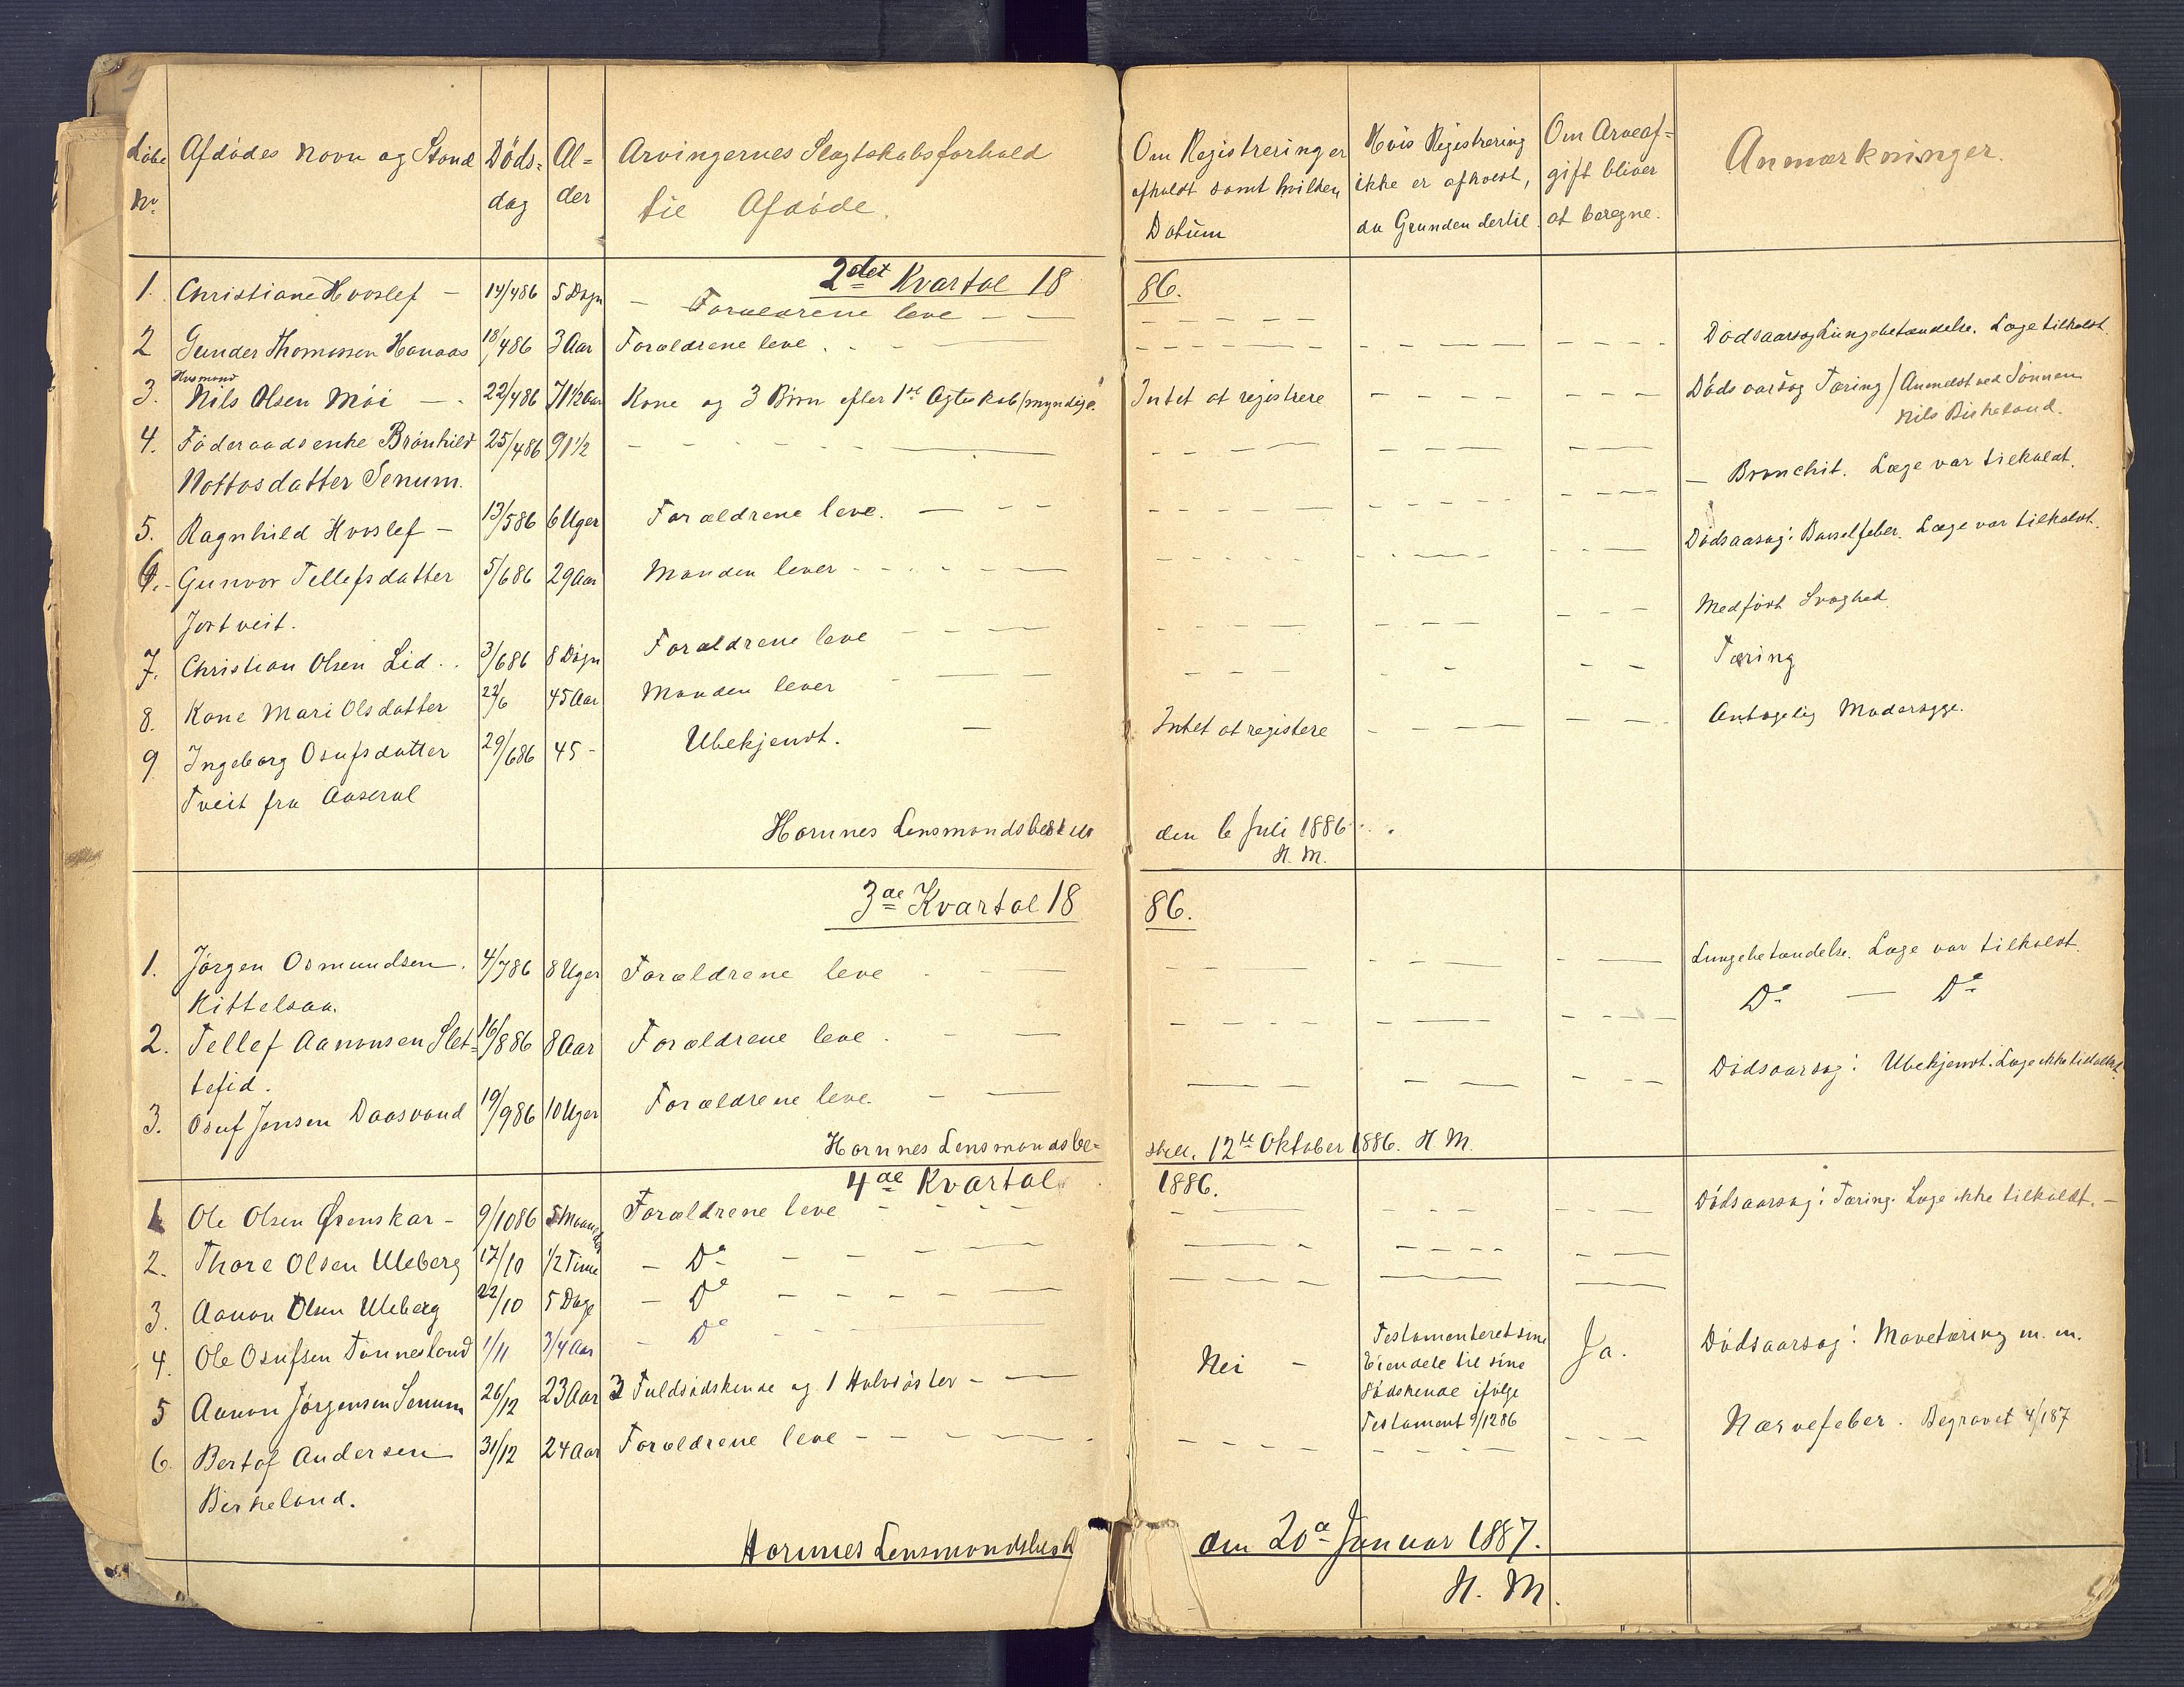 Løbe Nr. Afdødes Navn og Stand Døds-dag Al-der Arvingernes Slægtskabsforhold til Afdøde. Om Registrering er afholdt samt hvilken Datum Hvis Registrering ikke er afholdt, da Grunden dertil. Om Arveaf-gift bliver at beregne. Anmærkninger.
2det Kvartal 18 86.
1. Christiane Hvoslef – 14/4 86 5 Døgn – Forældrene leve – –
2 Gunder Thomassen Hanaas 18/4 86 3 Aar Forældrene leve. Dødsaarsag Lungebetændelse. Læge tilkaldt.
3. Husmand Nils Olsen Moi – 22/4 86 71½ Aar Kone og 3 Børn efter 1ste Ægteskab/myndige. Intet at registrere Dødsaarsag Tæring / Anmeldt ved Sønnen
Nils Birkeland.
4. Føderaadsenke Brønhild 25/4 86 91½
Nottosdatter Senum. – Bronchit. Læge var tilkaldt.
5. Ragnhild Hvoslef – 13/5 86 6 Uger Forældrene leve.
Dødsaarsag: Barselfeber. Læge var tilkaldt.
6. Gunvor Tellefsdatter 5/6 86 29 Aar Manden lever
Jortveit. Medfødt Svaghed
7. Christian Olsen Lid 3/6 86 8 Døgn Forældrene leve
Tæring
8. Kone Mari Olsdatter 22/6 45 Aar Manden lever
Antagelig Modersyge.
9 Ingeborg Osufsdatter 29/6 86 45 – Ubekjendt. – Intet at registere
Tveit fra Aaseral
Hornnes Lensmandsbestill den 6 Juli 1886
H. M.
3die Kvartal 18 86.
1. Jørgen Osmundsen 4/7 86 8 Uger Forældrene leve Lungebetændelse. Læge var tilkaldt.
Kittelsaa. Do – Do
2. Tellef Aanonsen Slet- 16/8 86 8 Aar Forældrene leve
tefid. Dødsaarsag: Ubekjendt. Læge ikke tilkaldt.
3. Osuf Jensen Daasvand 19/9 86 10 Uger Forældrene leve.
Hornnes Lensmandsbe- still. 12te Oktober 1886. H M.
4de Kvartal 1886.
1 Ole Olsen Grenskar – 9/10 86 5 Maaneder Forældrene leve Dødsaarsag: Tæring. Læge ikke tilkaldt. –
2. Thore Olsen Uleberg 17/10 ½ Time – Do
3. Aanon Olsen Uleberg 22/10 5 Dage – Do
4. Ole Osufsen Tønnesland 1/11 3/4 Aar – Do
5 Aanon Jørgensen Senum 26/12 23 Aar 3 Fuldsødskende og 1 Halvsøster – Nei – Testamenteret sine Eiendele til sine Sødskende ifølge Testament 9/12 86 Ja. Dødsaarsag: Mavetæring m. m.
6. Bertof Andersen 31/12 24 Aar Forældrene leve – Nærvefeber. Begravet 4/1 87
Birkeland.
Hornnes Lensmandsbest den 20de Januar 1887.
H. M.